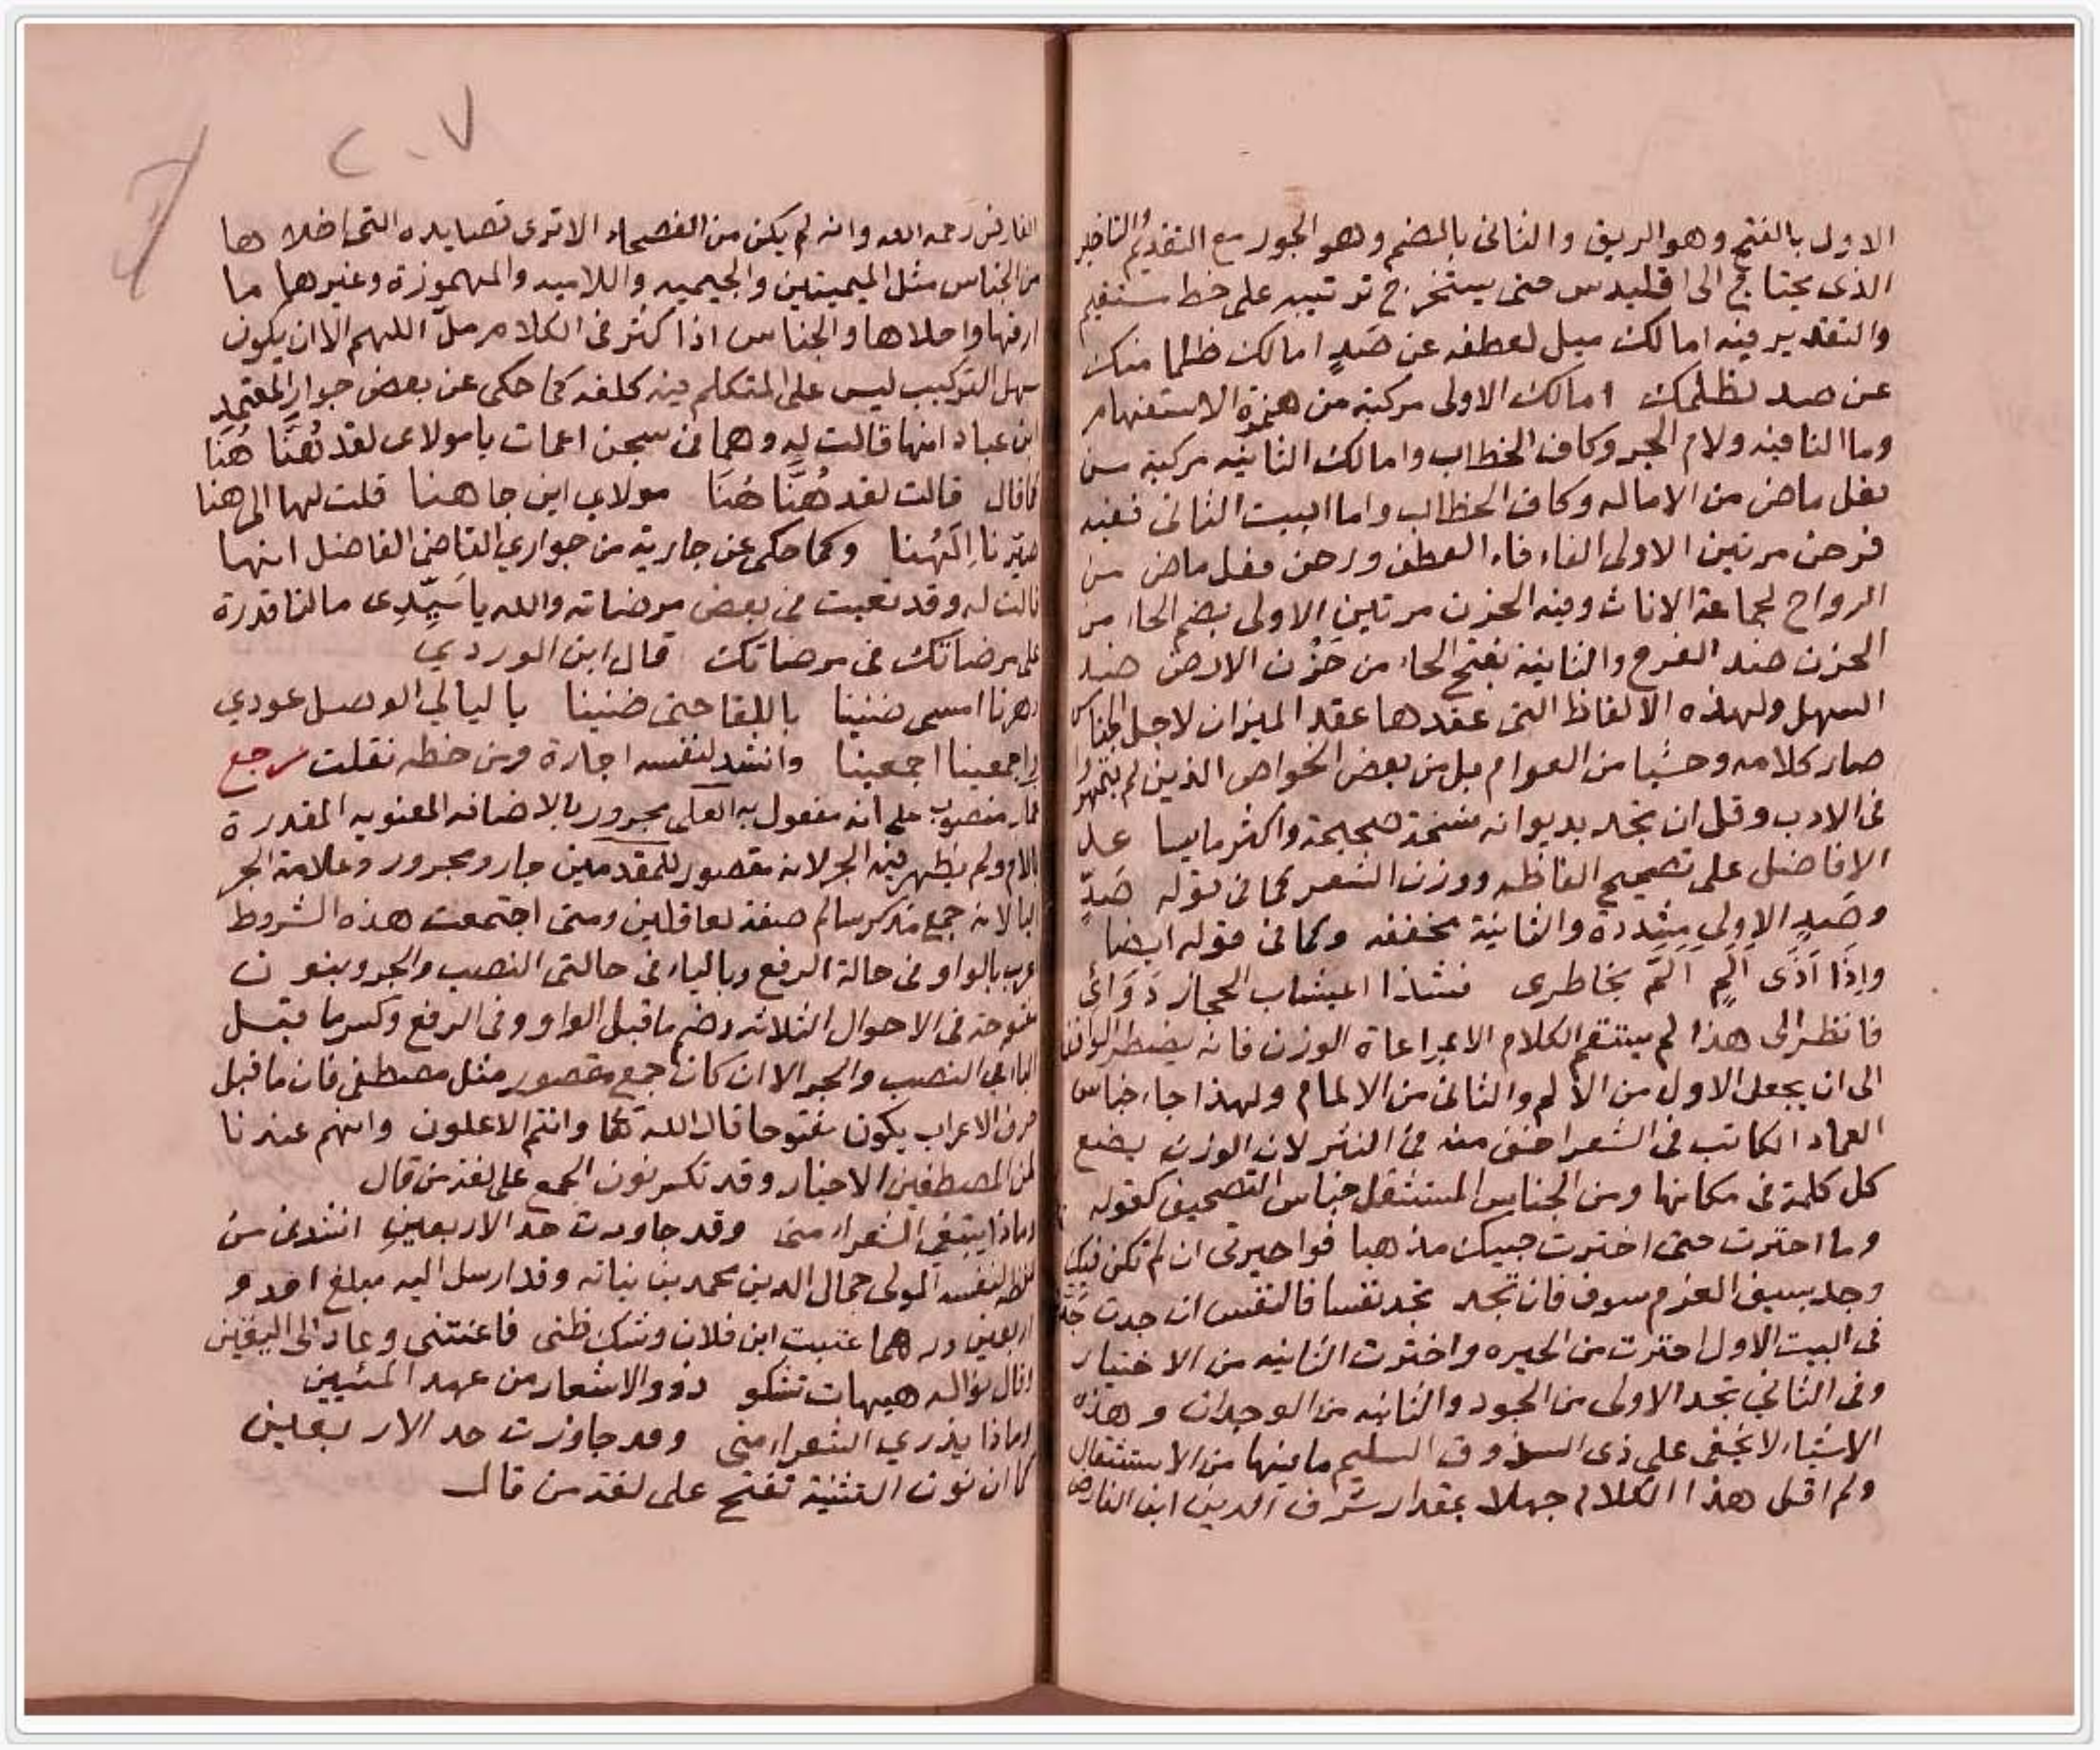 الاول بالفتح وهو الريق والثانى بالضم وهو الجور مع التقديم والتاخير
الذى يحتاج الى اقليدس حتى يستخرج ترتيبه على خط مستقيم
والتقدير فيه امالك ميل لعطفه عن صَدٍ امالك ظلما منك
عن صد لظلمك امالك الاولى مركبة من همزة الاستفهام
وما النافيه ولام الجر وكاف الخطاب وامالك الثانيه مركبة من
فعل ماض من الاماله وكاف الخطاب واما البيت الثانى ففيه
فرحن مرتين الاولى الفاء فاء العطف ورحن فعل ماض من
الرواح لجماعة الاناث وفيه الحزن مرتين الاولى بضم الحاء من
الحزن ضد الفرح والثانية بفتح الحاء من حَزْن الارض ضد
السهل ولهذه الالفاظ التى عقدها عقد الميزان لاجل الجناس
صار كلامه وحشيا من العوام بل من بعض الخواص الذين لم يتمهروا
فى الادب وقل ان تجد بديوانه نسخة صحيحة واكثر ما يسا عد
الافاضل على تصحيح الفاظه ووزن الشعر كما فى قوله صَدٍّ
وصَدٍ الاولى مشددة والثانية مخففه وكما فى قوله ايضا
واِذَا اَذَى اَلَمٍ اَلَمَّ بخاطرى فشذا اعيشاب الحجاز دَوَائى
فانظر الى هذا لم يستقم الكلام الا بمراعاة الوزن فانه يضطر الواقف
الى ان يجعل الاول من الالم والثانى من الالمام ولهذا جاء جناس
العماد الكاتب فى الشعر اخف منه فى النثر لان الوزن يضع
كل كلمة فى مكانها ومن الجناس المستثقل جناس التصحيف كقوله
وما احترت حتى اخترت حبيك مذهبا فواحيرتى ان لم تكن فيك
وجد بسيف العزم سوف فان تجد تجد نفسا فالنفس ان جدت جَدَّ
فى البيت الاول احترت من الحيره واخترت الثانيه من الاختيار
وفى الثاني تجد الاولى من الجود والثانيه من الوجدان وهذه
الاشياء لا تخفى على ذى الذوق السليم ما فيها من الاستثقال
ولم اقل هذا الكلام جهلا بمقدار شرف الدين ابن الفارض
٢٠٧
الفارض رحمه الله وانه لم يكن من الفصحاء الا ترى قصايده التى اخلاها
من الجناس مثل الميميتين والجيميه واللاميه والمهموزة وغيرها ما
ارقها واحلاها والجناس اذا كثر فى الكلام ملّ اللهم الا ان يكون
سهل التركيب ليس على المتكلم فيه كلفه كما حكى عن بعض جوار المعتمد
ابن عباد انها قالت له وهما فى سجن اغمات يا مولاى لقد هُنَّا هُنَا
فقال قالت لقد هُنَّا هُنَا مولاي اين جاهنا قلت لها الى هنا
صيّرنا اِلَهُنا وكما حكى عن جارية من جواري القاضى الفاضل انها
قالت له وقد تعبت فى بعض مرضاته والله يا سَيِّدِى ما لنا قدرة
على مرضاتك فى مرضاتك قال ابن الوردي
دهرنا امسى ضنينا باللقا حتى ضنينا يا ليالي الوصل عودي
واجمعينا اجمعينا وانشد لنفسه اجازة ومن خطه نقلت رجع
منصوب على انه مفعول به العلى مجرور بالاضافه المعنويه المقدرة
باللام ولم يظهر فيه الجر لانه مقصور للمقدمين جار ومجرور وعلامة الجر
اليا لانه جمع مذكر سالم صفة لعاقلين ومتى اجتمعت هذه الشروط
اعرب بالواو فى حالة الرفع وبالياء فى حالتى النصب والجر وبنون
مفتوحة فى الاحوال الثلاثه وضم ما قبل الواو وفى الرفع وكسر ما قبل
الياء في النصب والجر الا ان كان جمع مقصور مثل مصطفى فان ما قبل
حرف الاعراب يكون مفتوحا قال الله تعا وانتم الاعلون وانهم عندنا
لمن المصطفين الاخيار وقد تكسر نون الجمع على لغة من قال
وماذا يبتغي الشعراء منى وقد جاوزت حد الاربعينِ انشدنى من
لفظه لنفسه المولى جمال الدين محمد بن نباته وقد ارسل اليه مبلغ احد و
اربعين درهما عتبت ابن فلان وشك ظنى فاعنتنى وعاد الى اليقين
وقال نواله هيهات تشكو ذوو الاشعار من عهد المئيين
وماذا يدري الشعراء منى وقد جاوزت حد الاربعين
كما ان نون التثنية تفتح على لغة من قال